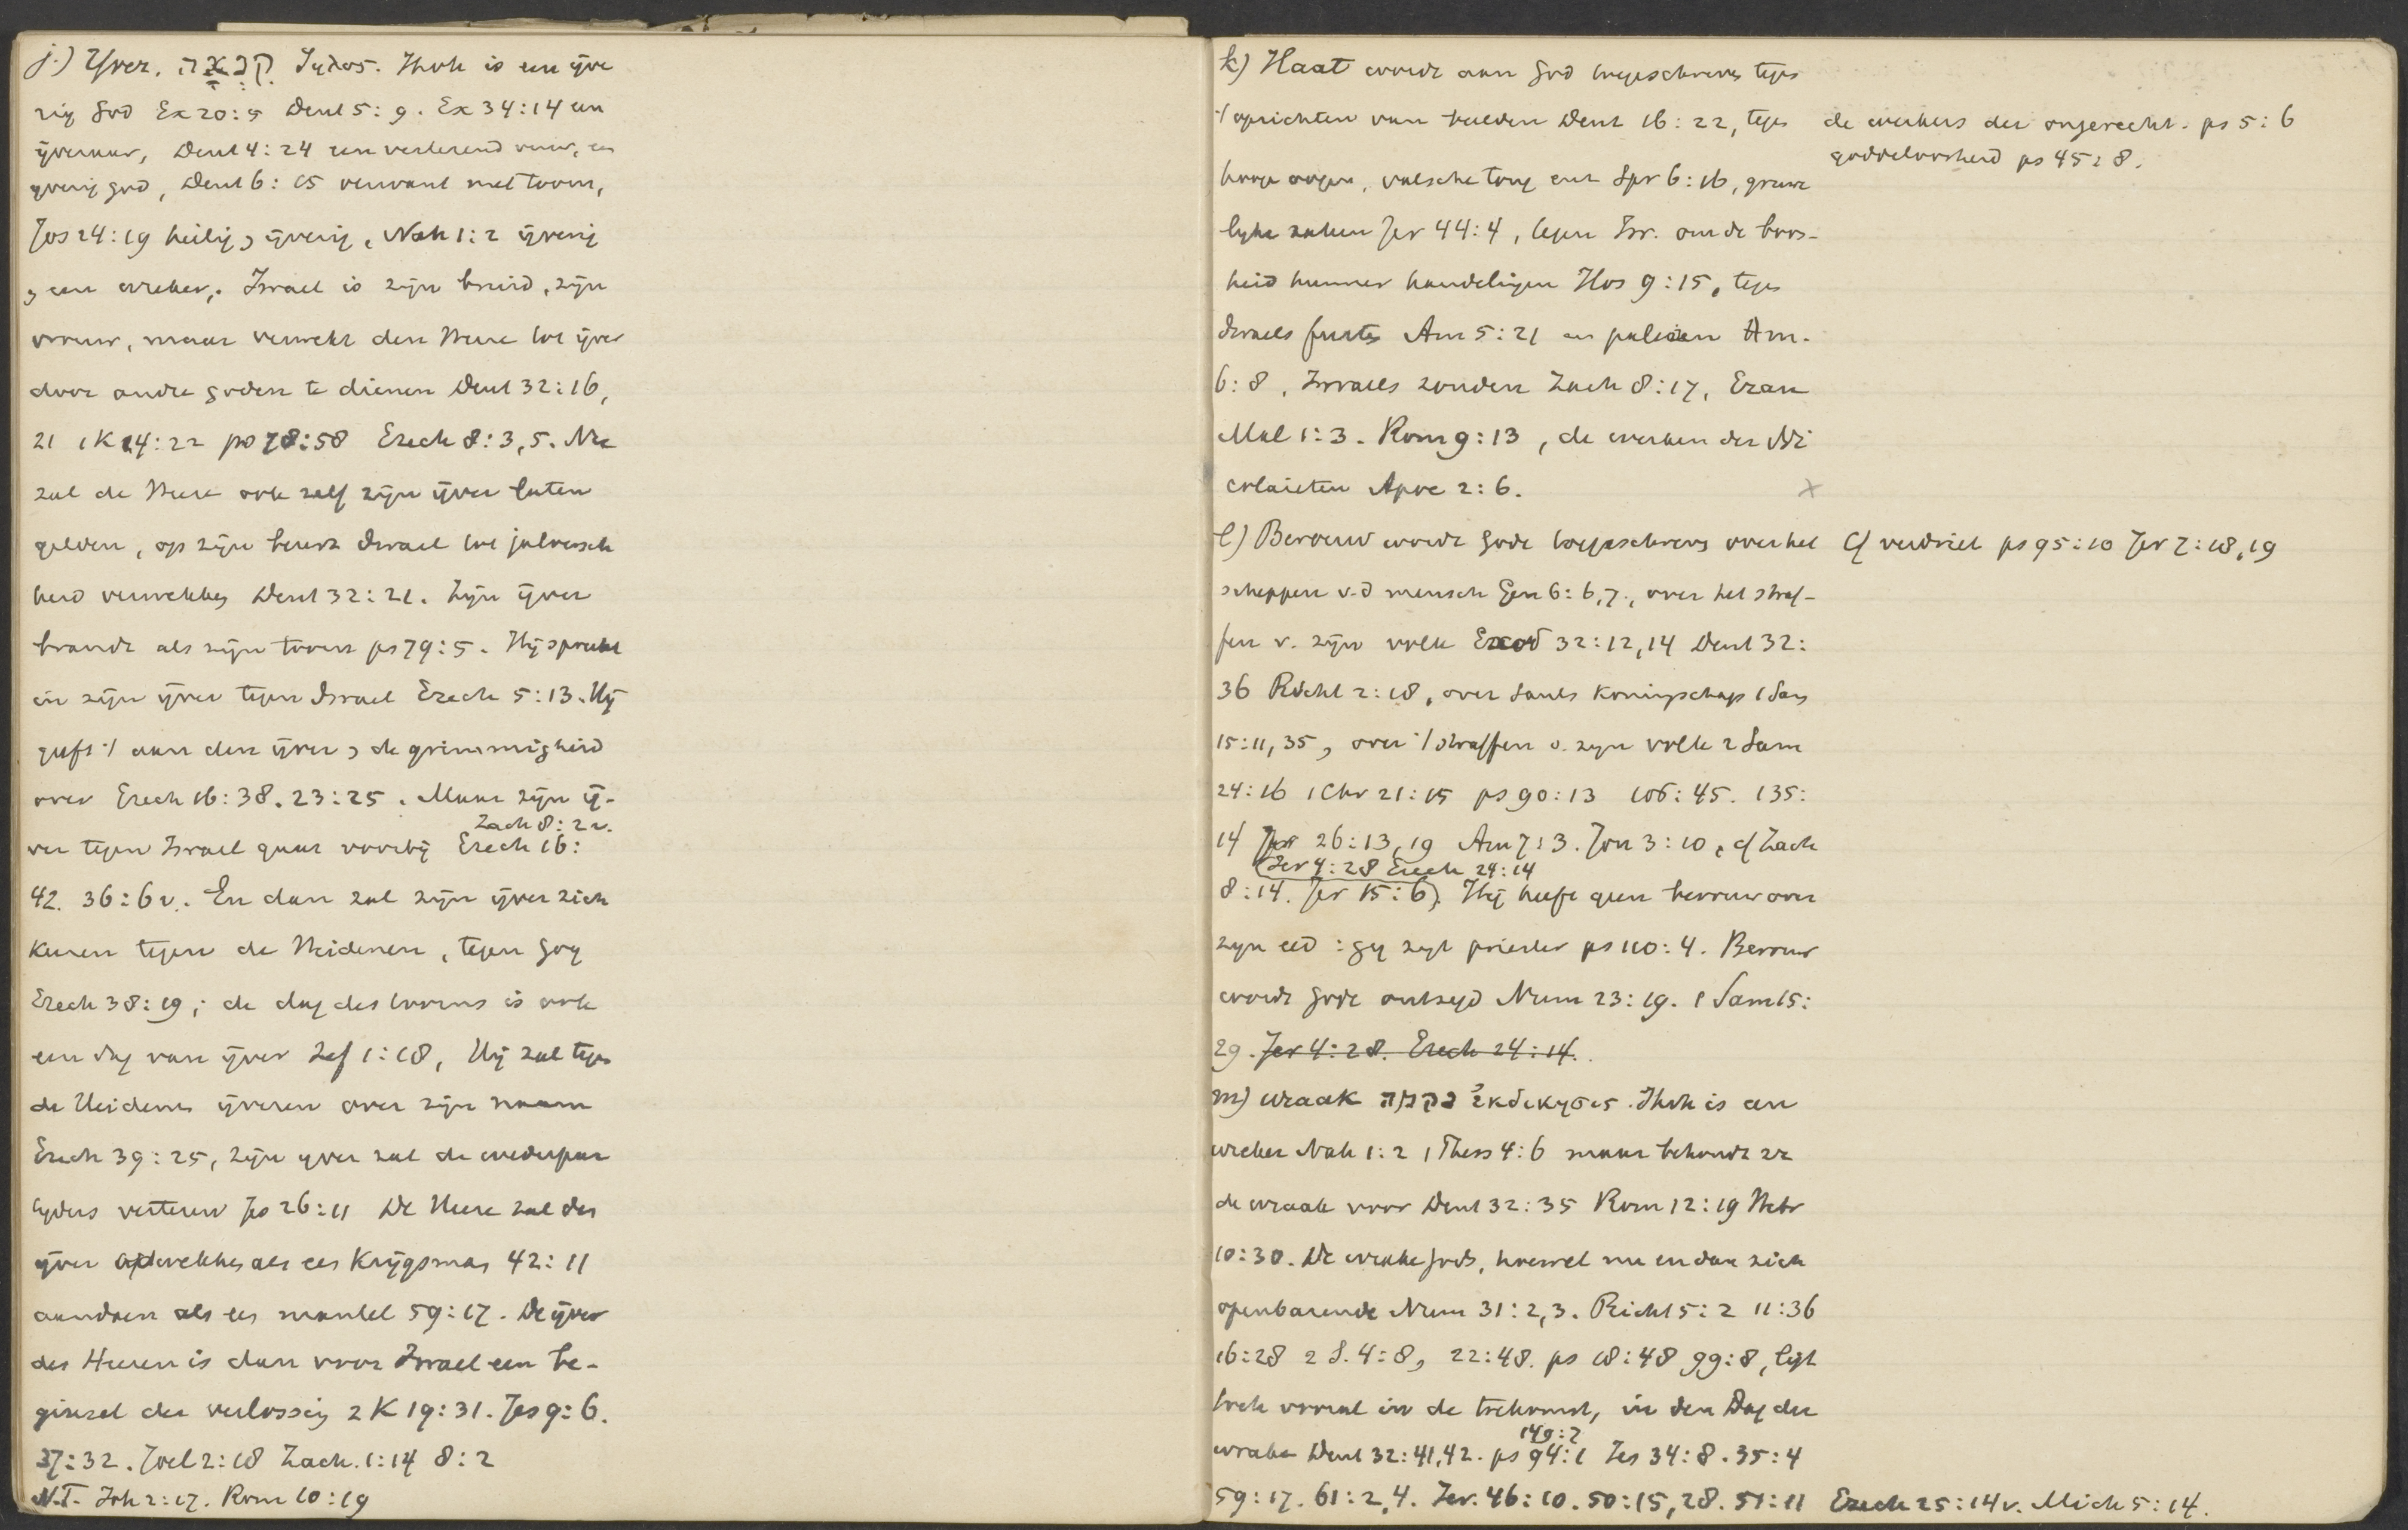 j.) IJver. קִנְאָה ζηλος. Jhvh is een ijve
rig God Ex 20:5 Deut 5:9. Ex 34:14 een
ijveraar, Deut 4:24 een verterend vuur, een
ijverig god, Deut 6:15 verwant met toorn,
Jos 24:19 heilig, ijverig, Nah 1:2 ijverig
, een wreker,. Israel is zijn bruid, zijn
vrouw, maar verwekt den Heere tot ijver
door andre goden te dienen Deut 32:16,
21 1K 14:22 ps 78:58 Ezech 8:3,5. Nu
zal de Heere ook zelf zijn ijver laten
gelden, op zijn beurt Israel tot jaloersch
heid verwekken Deut 32:21. Zijn ijver
brandt als zijn toorn ps 79:5. Hij spreekt
in zijn ijver tegen Israel Ezech 5:13. Hij
geeft 't aan den ijver, de grimmigheid
over Ezech 16:38. 23:25. Maar zijn ij-
Zach 8:2v.
ver tegen Israel gaat voorbij Ezech 16:
42. 36:6v. En dan zal zijn ijver zich
keeren tegen de Heidenen, tegen Gog
Ezech 38:19; de dag des toorns is ook
een dag van ijver Zef 1:18, Hij zal tegen
de Heidenen ijveren over zijn naam
Ezech 39:25, zijn yver zal de wederpar
tyders verteren Jes 26:11 De Heere zal den
ijver opwekken als een Krijgsman 42:11
aandoen als een mantel 59:17. De ijver
des Heeren is dan voor Israel een be-
ginsel der verlossing 2 K 19:31. Jes 9:6.
37:32. Joel 2:18 Zach. 1:14 8:2
N.T. Joh 2:17. Rom 10:19
k) Haat wordt aan God toegeschreven tegen
't oprichten van beelden Deut 16:22, tegen de werkers der ongerecht. ps 5:6
goddeloosheid ps 45:8.
hooge oogen, valsche tong enz Spr 6:16, gruwe
lyke zaken Jer 44:4, tegen Isr. om de boos-
heid hunner handelingen Hos 9:15, tegen
Israels feesten Am 5:21 en paleizen Am.
6:8, Israels zonden Zach 8:17, Ezau
Mal 1:3. Rom 9:13, de werken der Ni
colaieten Apoc 2:6. x
l) Berouw wordt Gode toegeschreven over het cf verdriet ps 95:10 Jer 7:18,19
scheppen v.d mensch Gen 6:6,7., over het straf-
fen v. zijn volk Exod 32:12,14 Deut 32:
36 Richt 2:18, over Sauls koningschap 1 Sam
15:11,35, over 't straffen v. zyn volk 2 Sam
24:16 1 Chr 21:15 ps 90:13 106:45. 135:
14 Jer 26:13,19 Am 7:3. Jon 3:10, cf Zach
(Jer 4:28 Ezech 24:14
8:14. Jer 15:6). Hij heeft geen berouw over
zyn eed: gy zyt priester ps 110:4. Berouw
wordt Gode ontzegd Num 23:19. 1 Sam 15:
29. Jer 4:28. Ezech 24:14.
m) wraak נקמה ἐκδικησις. Jhvh is een
wreker Nah 1:2 1 Thess 4:6 maar behoudt zz
de wraak voor Deut 32:35 Rom 12:19 Hebr
10:30. De wrake Gods, hoewel nu en dan zich
openbarende Num 31:2,3. Richt 5:2 11:36
16:28 2 S. 4:8, 22:48. ps 18:48 99:8, ligt
toch vooral in de toekomst, in den Dag der
149:7
wrake Deut 32:41,42. ps 94:1 Jes 34:8. 35:4
59:17. 61:2,4. Jer. 46:10. 50:15,28. 51:11 Ezech 25:14v. Mich 5:14.